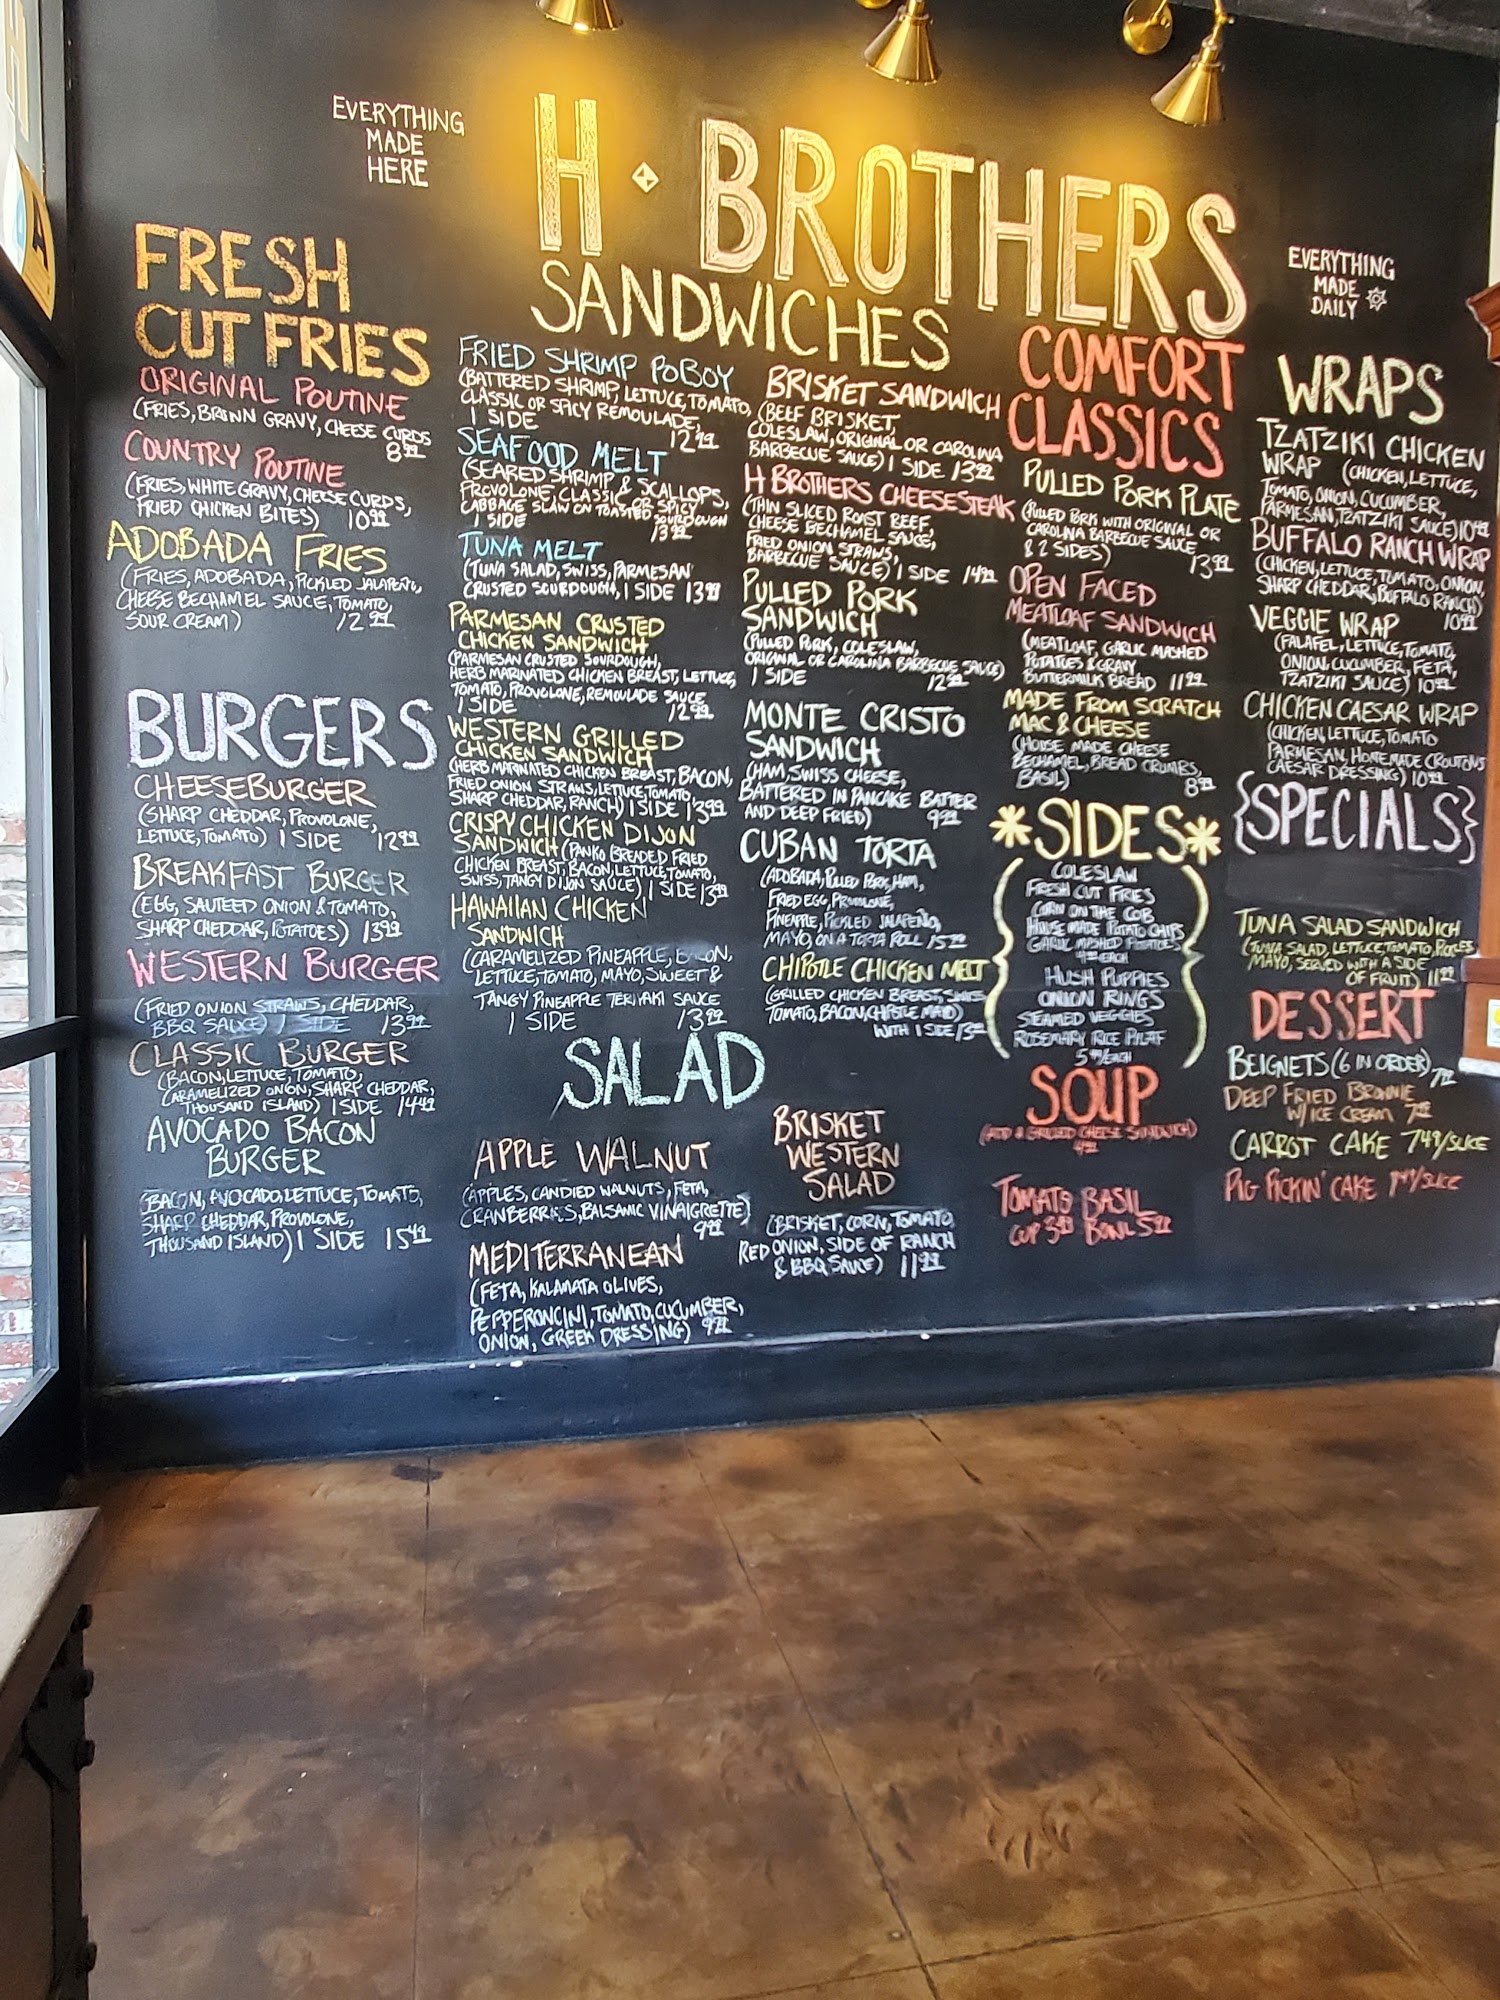 EVERYTHING
MADE
HERE
H · BROTHERS
EVERYTHING
MADE
DAILY
FRESH
CUT FRIES
ORIGINAL POUTINE
(FRIES, BROWN GRAVY, CHEESE CURDS
8.99
COUNTRY POUTINE
(FRIES, WHITE GRAVY, CHEESE CURDS,
FRIED CHICKEN BITES) 10.99
ADOBADA FRIES
(FRIES, ADOBADA, PICKLED JALAPEÑO,
CHEESE BECHAMEL SAUCE, TOMATO,
SOUR CREAM) 12.99
BURGERS
CHEESEBURGER
(SHARP CHEDDAR, PROVOLONE,
LETTUCE, TOMATO) 1 SIDE 12.99
BREAKFAST BURGER
(EGG, SAUTEED ONION & TOMATO,
SHARP CHEDDAR, POTATOES) 13.99
WESTERN BURGER
(FRIED ONION STRAWS, CHEDDAR,
BBQ SAUCE) 1 SIDE 13.99
CLASSIC BURGER
(BACON, LETTUCE, TOMATO,
CARAMELIZED ONION, SHARP CHEDDAR,
THOUSAND ISLAND) 1 SIDE 14.49
AVOCADO BACON
BURGER
(BACON, AVOCADO, LETTUCE, TOMATO,
SHARP CHEDDAR, PROVOLONE,
THOUSAND ISLAND) 1 SIDE 15.49
SANDWICHES
FRIED SHRIMP POBOY
(BATTERED SHRIMP, LETTUCE, TOMATO,
CLASSIC OR SPICY REMOULADE,
1 SIDE 12.99
SEAFOOD MELT
(SEARED SHRIMP & SCALLOPS,
PROVOLONE, CLASSIC OR SPICY
CABBAGE SLAW ON TOASTED SOURDOUGH
1 SIDE 13.99
TUNA MELT
(TUNA SALAD, SWISS, PARMESAN
CRUSTED SOURDOUGH, 1 SIDE 13.99
PARMESAN CRUSTED
CHICKEN SANDWICH
(PARMESAN CRUSTED SOURDOUGH,
HERB MARINATED CHICKEN BREAST, LETTUCE,
TOMATO, PROVOLONE, REMOULADE SAUCE
1 SIDE 12.99
WESTERN GRILLED
CHICKEN SANDWICH
(HERB MARINATED CHICKEN BREAST, BACON,
FRIED ONION STRAWS, LETTUCE, TOMATO,
SHARP CHEDDAR, RANCH) 1 SIDE 13.99
CRISPY CHICKEN DIJON
SANDWICH (PANKO BREADED FRIED
CHICKEN BREAST, BACON, LETTUCE, TOMATO,
SWISS, TANGY DIJON SAUCE) 1 SIDE 13.99
HAWAIIAN CHICKEN
SANDWICH
(CARAMELIZED PINEAPPLE, BACON,
LETTUCE, TOMATO, MAYO, SWEET &
TANGY PINEAPPLE TERIYAKI SAUCE
1 SIDE 13.99
BRISKET SANDWICH
(BEEF BRISKET,
COLESLAW, ORIGINAL OR CAROLINA
BARBECUE SAUCE) 1 SIDE 13.99
H BROTHERS CHEESESTEAK
(THIN SLICED ROAST BEEF,
CHEESE BECHAMEL SAUCE,
FRIED ONION STRAWS,
BARBECUE SAUCE) 1 SIDE 14.99
PULLED PORK
SANDWICH
(PULLED PORK, COLESLAW,
ORIGINAL OR CAROLINA BARBECUE SAUCE)
1 SIDE 12.99
MONTE CRISTO
SANDWICH
(HAM, SWISS CHEESE,
BATTERED IN PANCAKE BATTER
AND DEEP FRIED) 9.99
CUBAN TORTA
(ADOBADA, PULLED PORK, HAM,
FRIED EGG, PROVOLONE,
PINEAPPLE, PICKLED JALAPEÑO,
MAYO, ON A TORTA ROLL 15.99
CHIPOTLE CHICKEN MELT
(GRILLED CHICKEN BREAST, SWISS
TOMATO, BACON, CHIPOTLE MAYO)
WITH 1 SIDE 13.99
SALAD
APPLE WALNUT
(APPLES, CANDIED WALNUTS, FETA,
CRANBERRIES, BALSAMIC VINAIGRETTE)
9.99
MEDITERRANEAN
(FETA, KALAMATA OLIVES,
PEPPERONCINI, TOMATO, CUCUMBER,
ONION, GREEK DRESSING) 9.99
BRISKET
WESTERN
SALAD
(BRISKET, CORN, TOMATO
RED ONION, SIDE OF RANCH
& BBQ SAUCE) 11.99
COMFORT
CLASSICS
PULLED PORK PLATE
(PULLED PORK WITH ORIGINAL OR
CAROLINA BARBECUE SAUCE
& 2 SIDES) 13.99
OPEN FACED
MEATLOAF SANDWICH
(MEATLOAF, GARLIC MASHED
POTATOES & GRAVY
BUTTERMILK BREAD 11.99
MADE FROM SCRATCH
MAC & CHEESE
(HOUSE MADE CHEESE
BECHAMEL, BREAD CRUMBS,
BASIL) 8.99
*SIDES*
COLESLAW
FRESH CUT FRIES
CORN ON THE COB
HOUSE MADE POTATO CHIPS
GARLIC MASHED POTATOES
EACH
HUSH PUPPIES
ONION RINGS
STEAMED VEGGIES
ROSEMARY RICE PILAF
5.49/EACH
SOUP
(ADD A GRILLED CHEESE SANDWICH)
TOMATO BASIL
CUP 3.99 BOWL 5.99
WRAPS
TZATZIKI CHICKEN
WRAP (CHICKEN, LETTUCE,
TOMATO, ONION, CUCUMBER,
PARMESAN, TZATZIKI SAUCE) 10.99
BUFFALO RANCH WRAP
(CHICKEN, LETTUCE, TOMATO, ONION,
SHARP CHEDDAR, BUFFALO RANCH)
10.99
VEGGIE WRAP
(FALAFEL, LETTUCE, TOMATO,
ONION, CUCUMBER, FETA,
TZATZIKI SAUCE) 10.99
CHICKEN CAESAR WRAP
(CHICKEN, LETTUCE, TOMATO
PARMESAN, HOMEMADE CROUTONS
CAESAR DRESSING) 10.99
{SPECIALS}
TUNA SALAD SANDWICH
(TUNA SALAD, LETTUCE, TOMATO, PICKLES,
MAYO, SERVED WITH A SIDE
OF FRUIT) 11.99
DESSERT
BEIGNETS (6 IN ORDER)
7.99
DEEP FRIED BROWNIE
W/ ICE CREAM 7.99
CARROT CAKE 7.49/SLICE
PIG PICKIN' CAKE 7.49/SLICE